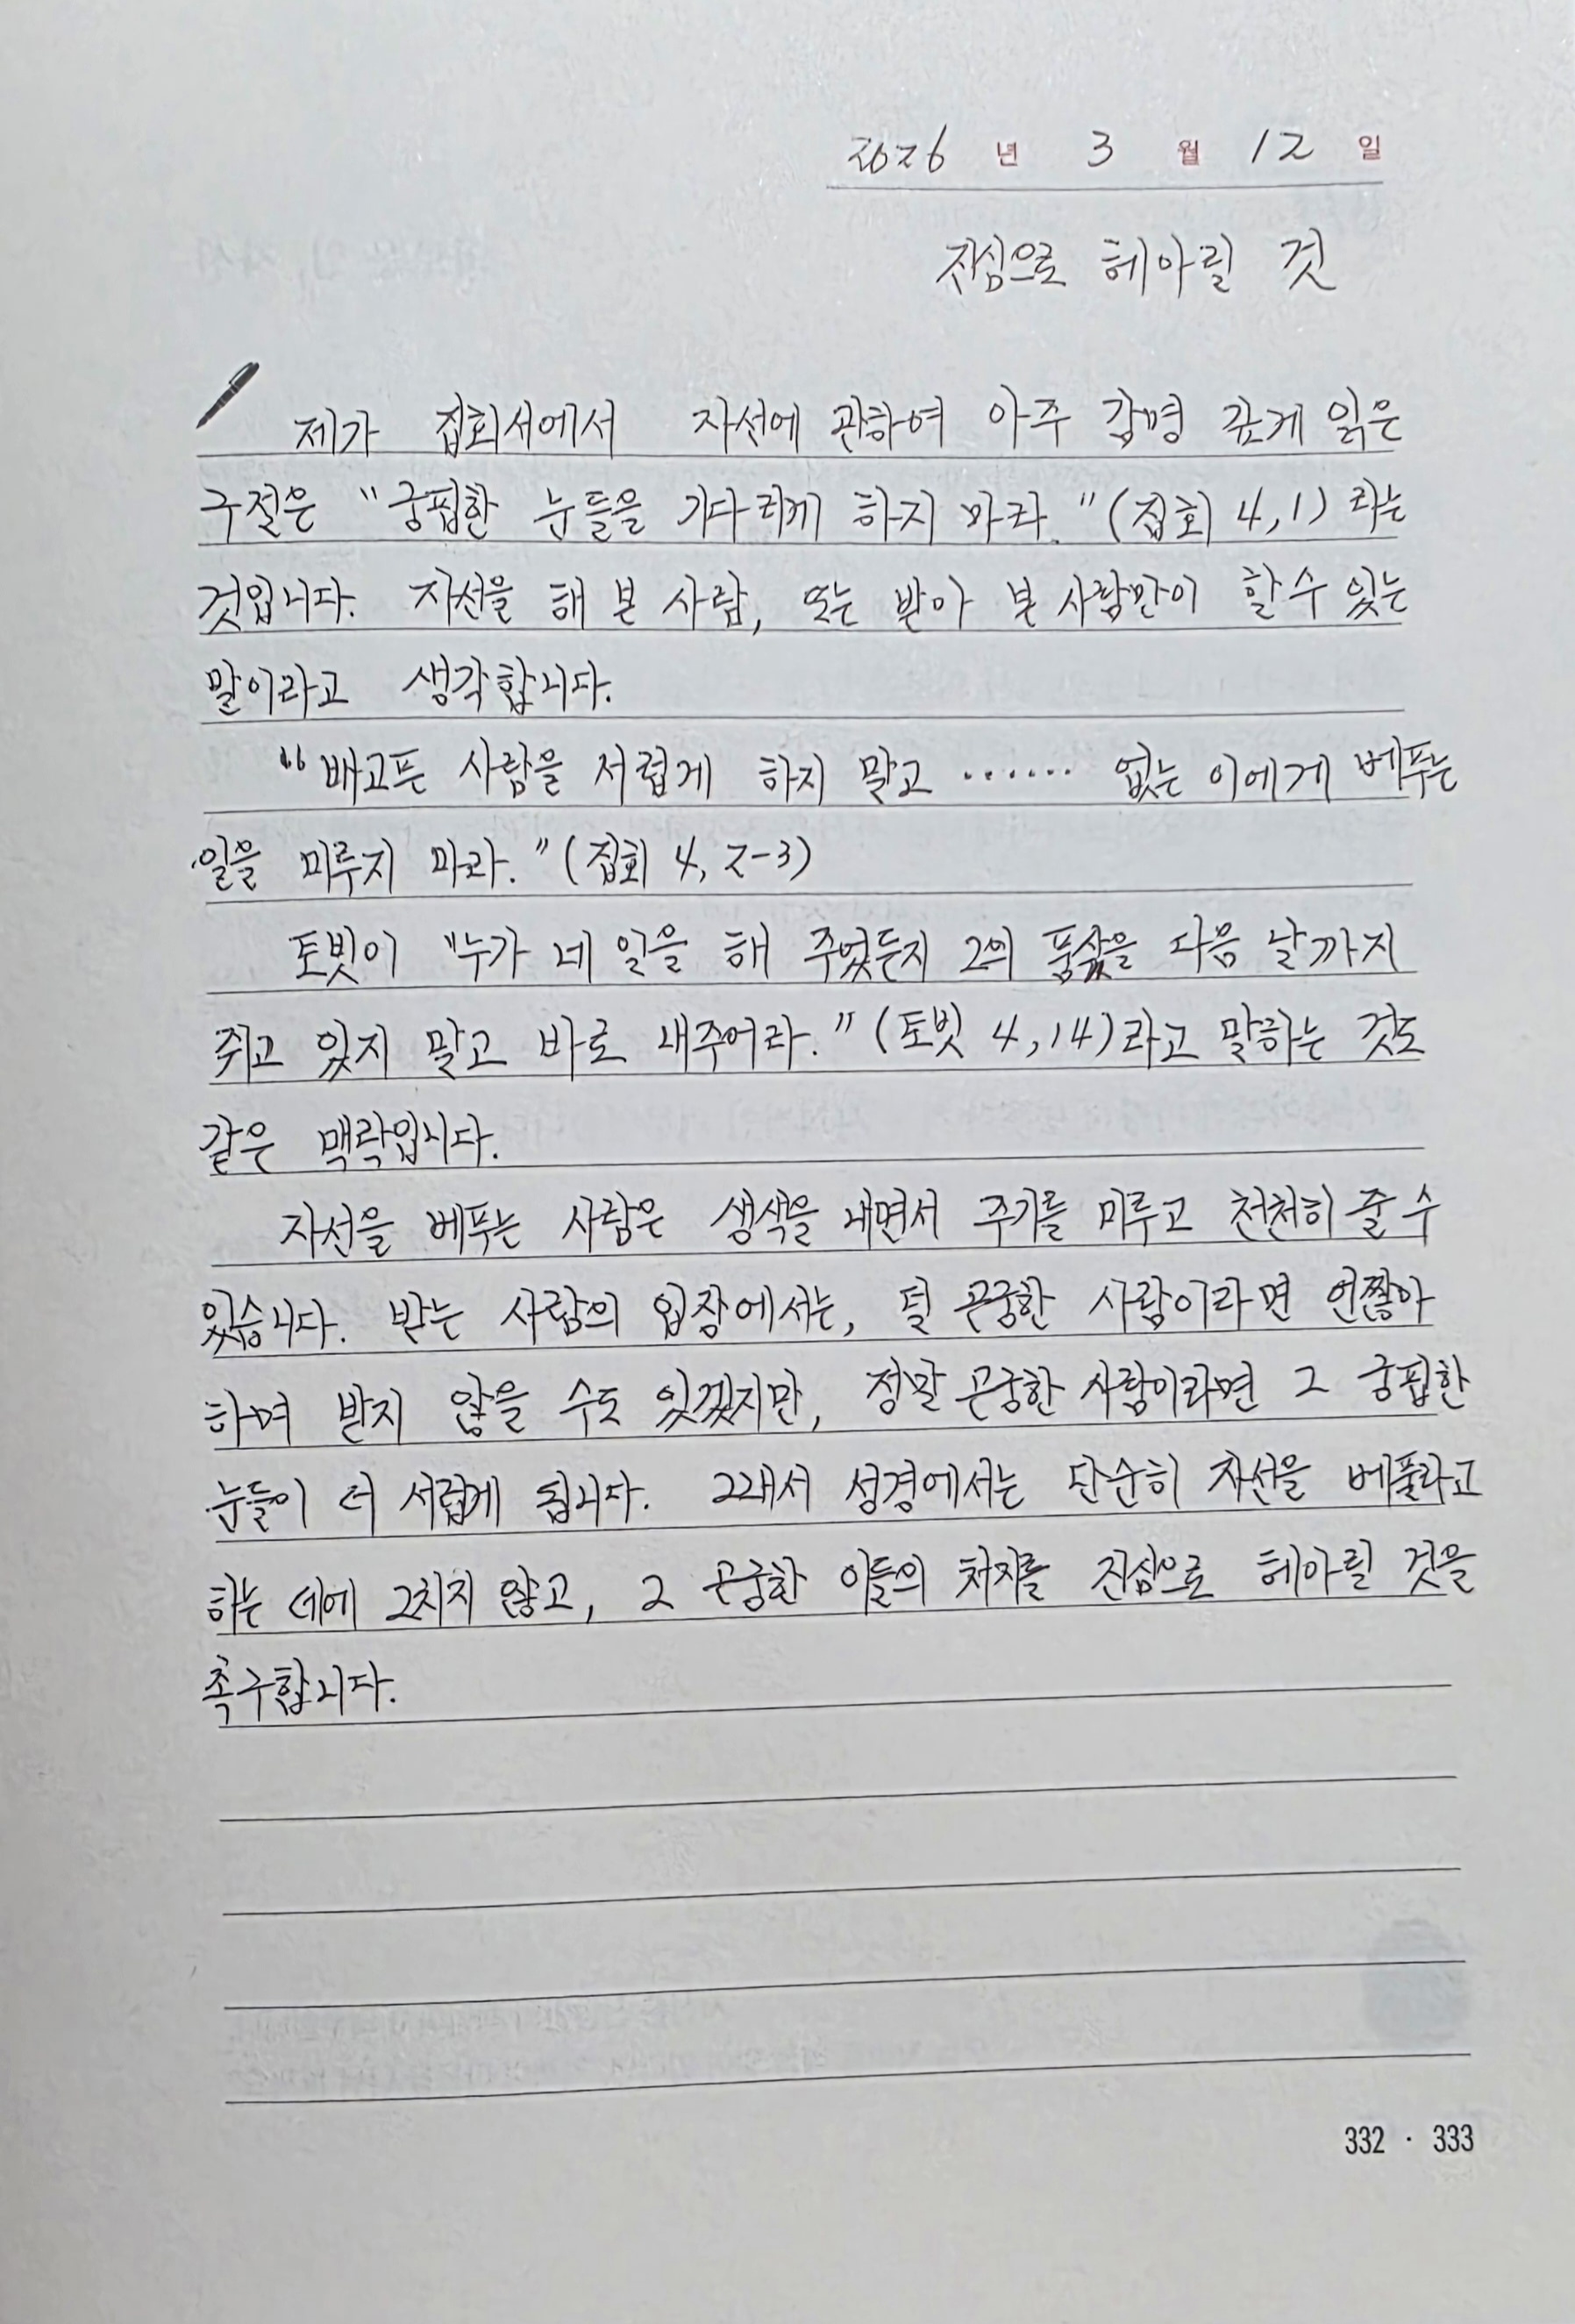 2026 년 3 월 12 일
진심으로 헤아릴 것
제가 집회서에서 자선에 관하여 아주 감명 깊게 읽은
구절은 "궁핍한 눈들을 기다리게 하지 마라."(집회 4,1) 라는
것입니다. 자선을 해 본 사람, 또는 받아 본 사람만이 할 수 있는
말이라고 생각합니다.
"배고픈 사람을 서럽게 하지 말고 ······· 없는 이에게 베푸는
일을 미루지 마라."(집회 4, 2-3)
토빗이 "누가 네 일을 해 주었든지 그의 품삯을 다음 날까지
쥐고 있지 말고 바로 내주어라."(토빗 4,14)라고 말하는 것도
같은 맥락입니다.
자선을 베푸는 사람은 생색을 내면서 주기를 미루고 천천히 줄 수
있습니다. 받는 사람의 입장에서는, 덜 곤궁한 사람이라면 언짢아
하며 받지 않을 수도 있겠지만, 정말 곤궁한 사람이라면 그 궁핍한
눈들이 더 서럽게 됩니다. 그래서 성경에서는 단순히 자선을 베풀라고
하는 데에 그치지 않고, 그 곤궁한 이들의 처지를 진심으로 헤아릴 것을
촉구합니다.
332 · 333